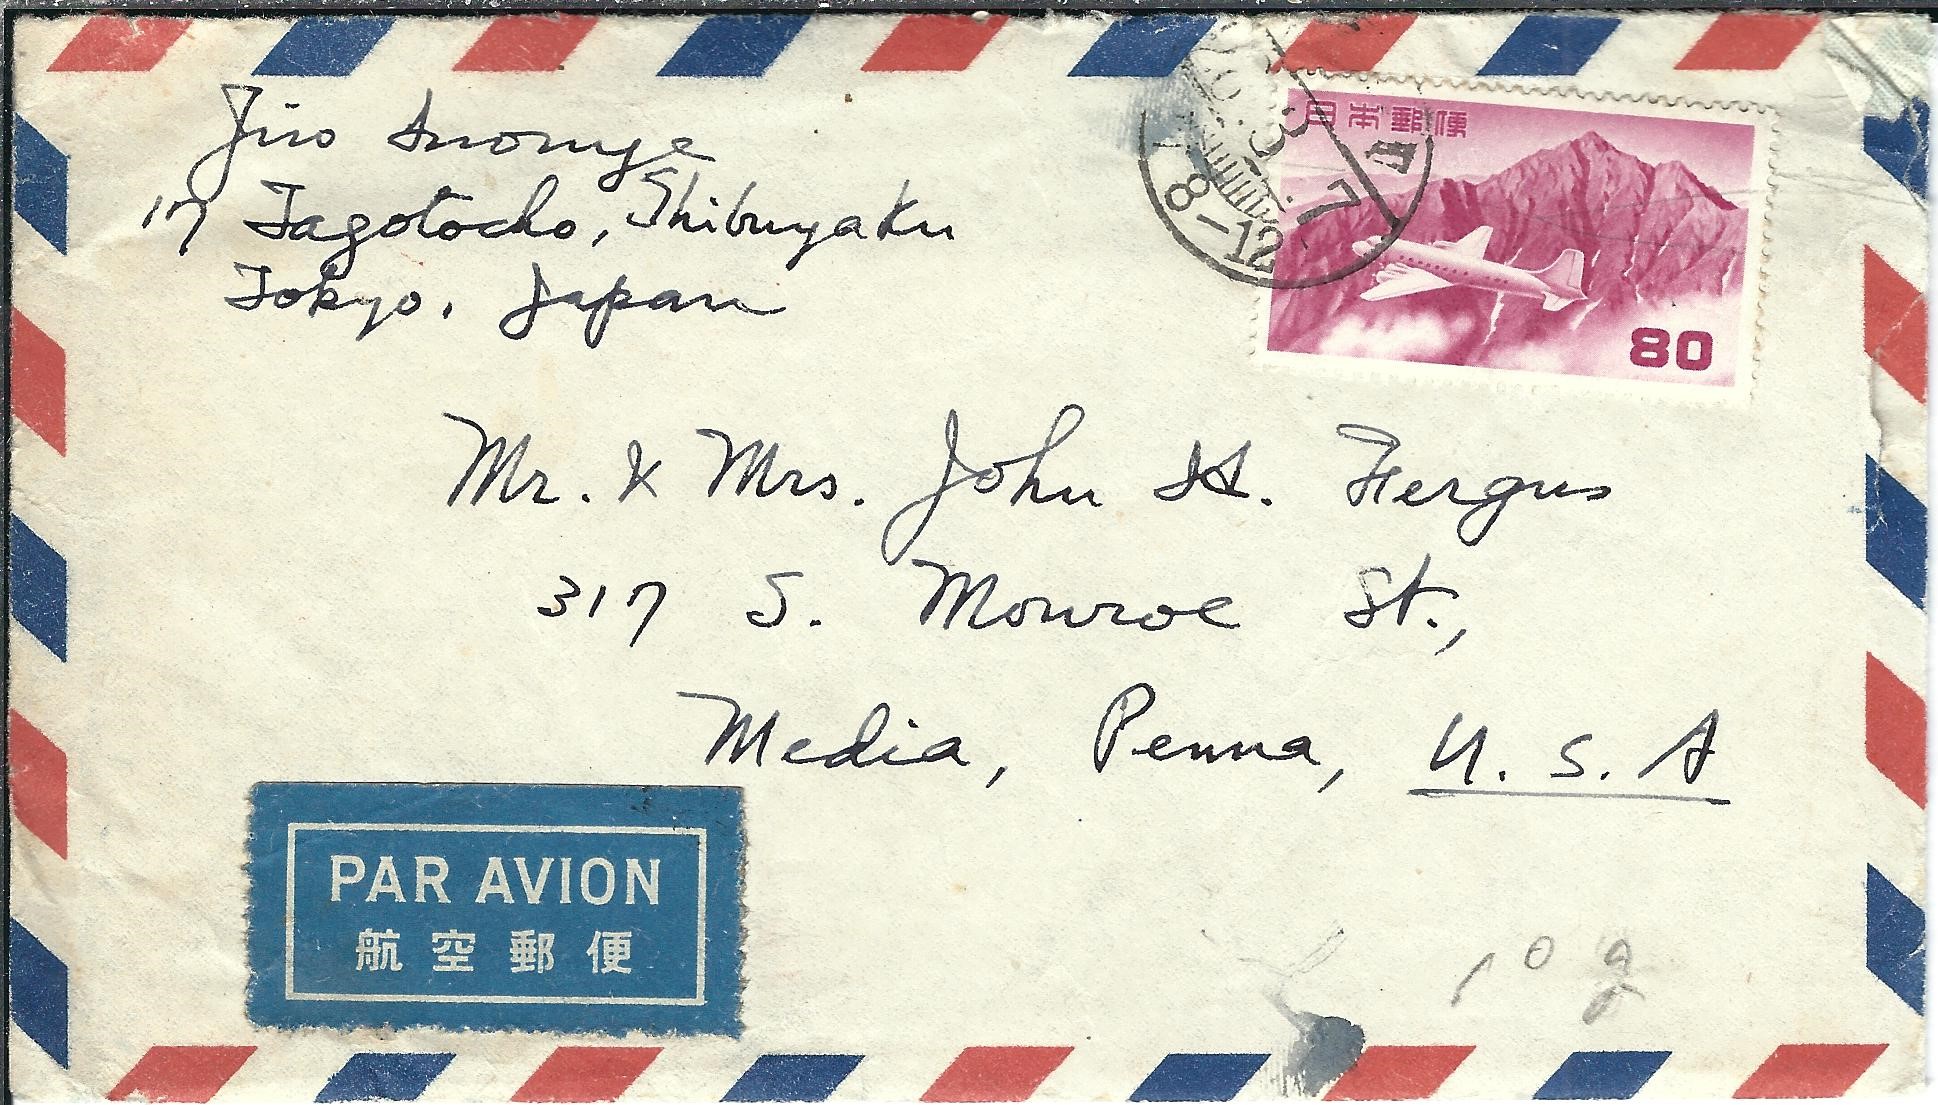 Jiro Inomye
17 Tagotocho, Shibuyaku
Tokyo, Japan
日本郵便
80
3. 7
8-12
Mr. & Mrs. John H. Fergus
317 S. Monroe St.,
Media, Penna, U. S. A
PAR AVION
航空郵便
10 g